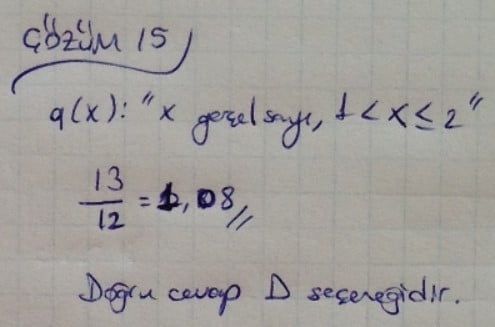 ÇÖZÜM 15
q(x): "x gerçel sayı, 1 < x ≤ 2"
13/12 = 1,08//
Doğru cevap D seçeneğidir.